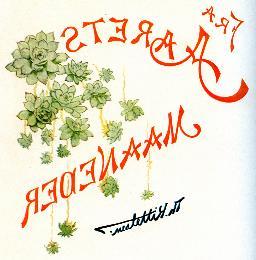 FRA
AARETS
MAANEDER
Th. Kittelsen